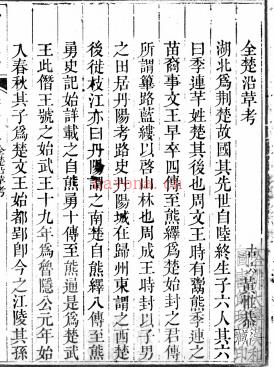 全楚沿革考
湖北爲荆楚故國其先世自陸終生子六人其六
曰季連芈姓楚其後也周文王時有鬻熊季連之
苗裔事文王早卒四傳至熊繹爲楚始封之君傳
所謂篳路藍縷以啓山林也周成王時封以子男
之田居丹陽考路史丹陽城在歸州東謂之西楚
後徙枝江亦曰丹陽謂之南楚自熊繹八傳至熊
勇史記始詳載之自熊勇十傳至熊通是爲楚武
王此僭王號之始武王十九年爲魯隱公元年始
入春秋其子爲楚文王始都郢卽今之江陵其孫